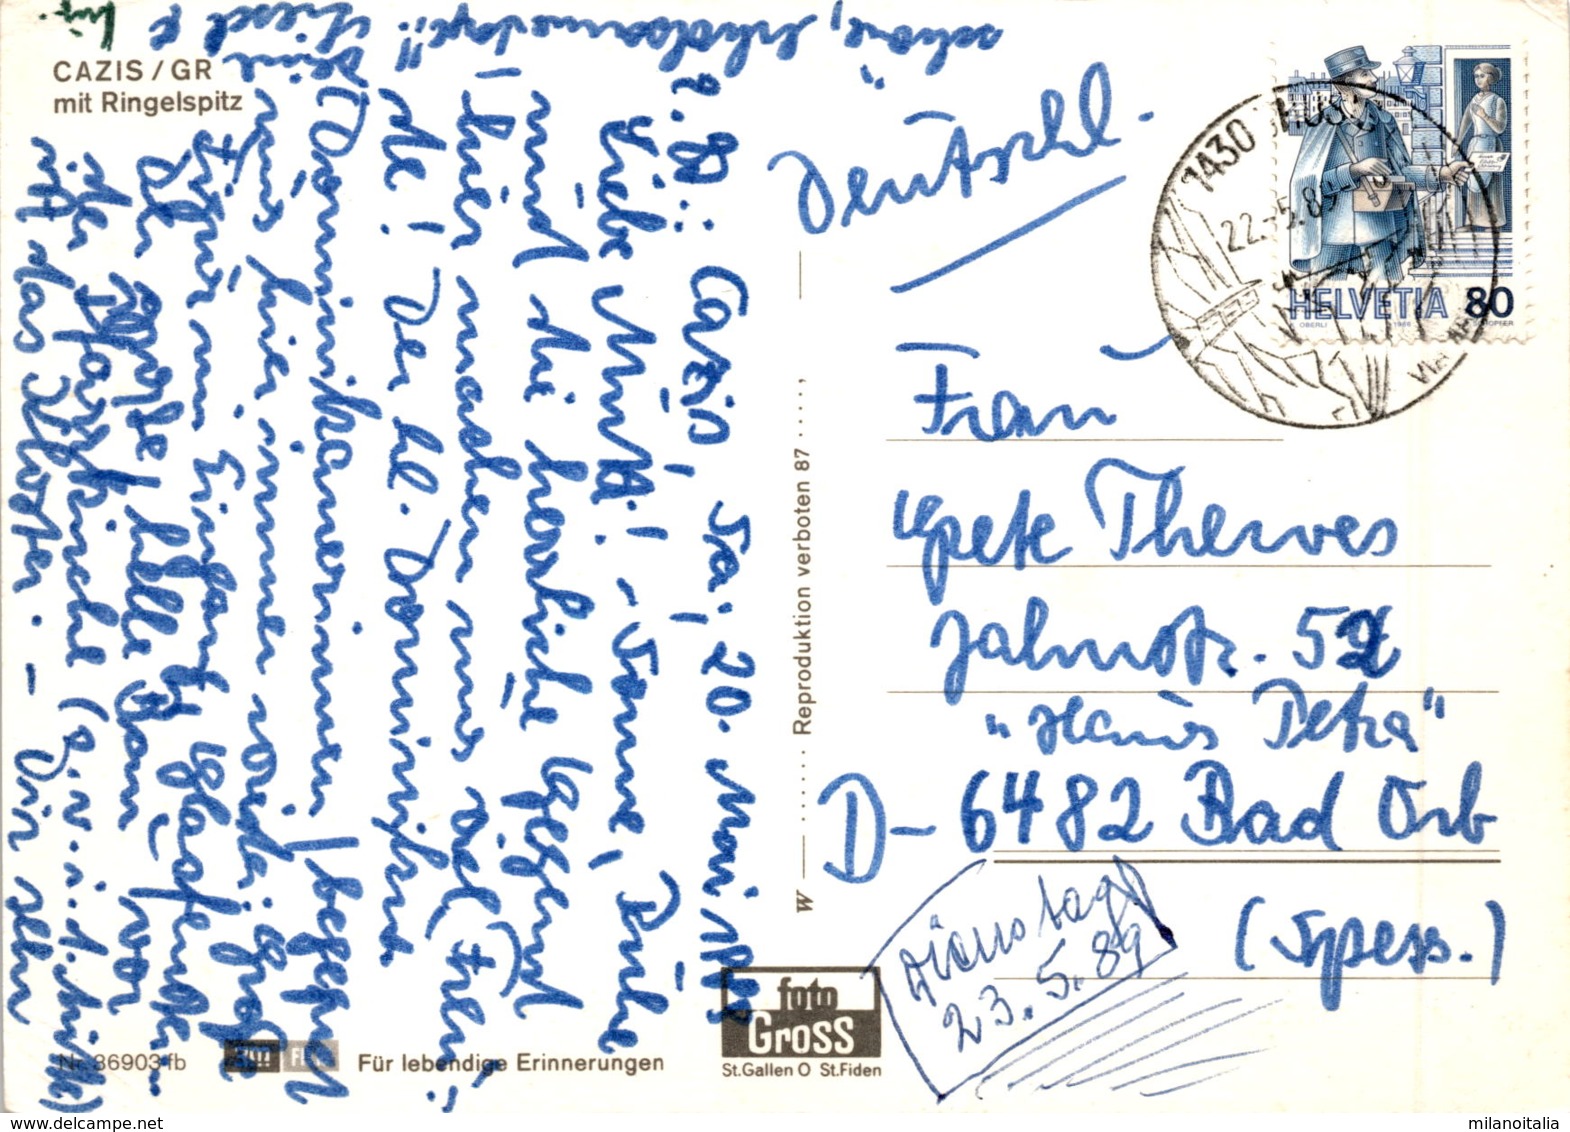 CAZIS / GR
mit Ringelspitz
z. Zt.: Cazis, Sa., 20. Mai 1989
Liebe Mutti! – Sonne, Ruhe
und die herrliche Gegend
hier machen uns viel Freu-
de! Der hl. Dominikus
(Dominikanerinnen) begegnet
uns hier immer wieder: große
Figur am Eingang, Glasfenster
der Pfarrkirche (q. v. i. d. Mitte)
ist das Kloster. – Wir sehr
schöne, erholsame Tage!!
Deine
W
Reproduktion verboten 87
Nr. 36903 fb
Für lebendige Erinnerungen
foto
Gross
St.Gallen O St.Fiden
Deutschl.
HELVETIA 80
OBERLI
1986
SCHOPFER
1430
22.-5.89
VIA MALA
Frau
Grete Therves
Jahnstr. 52
"Haus Petra"
D-6482 Bad Orb
(Spess.)
Dienstag,
23.5.89
milanoitalia